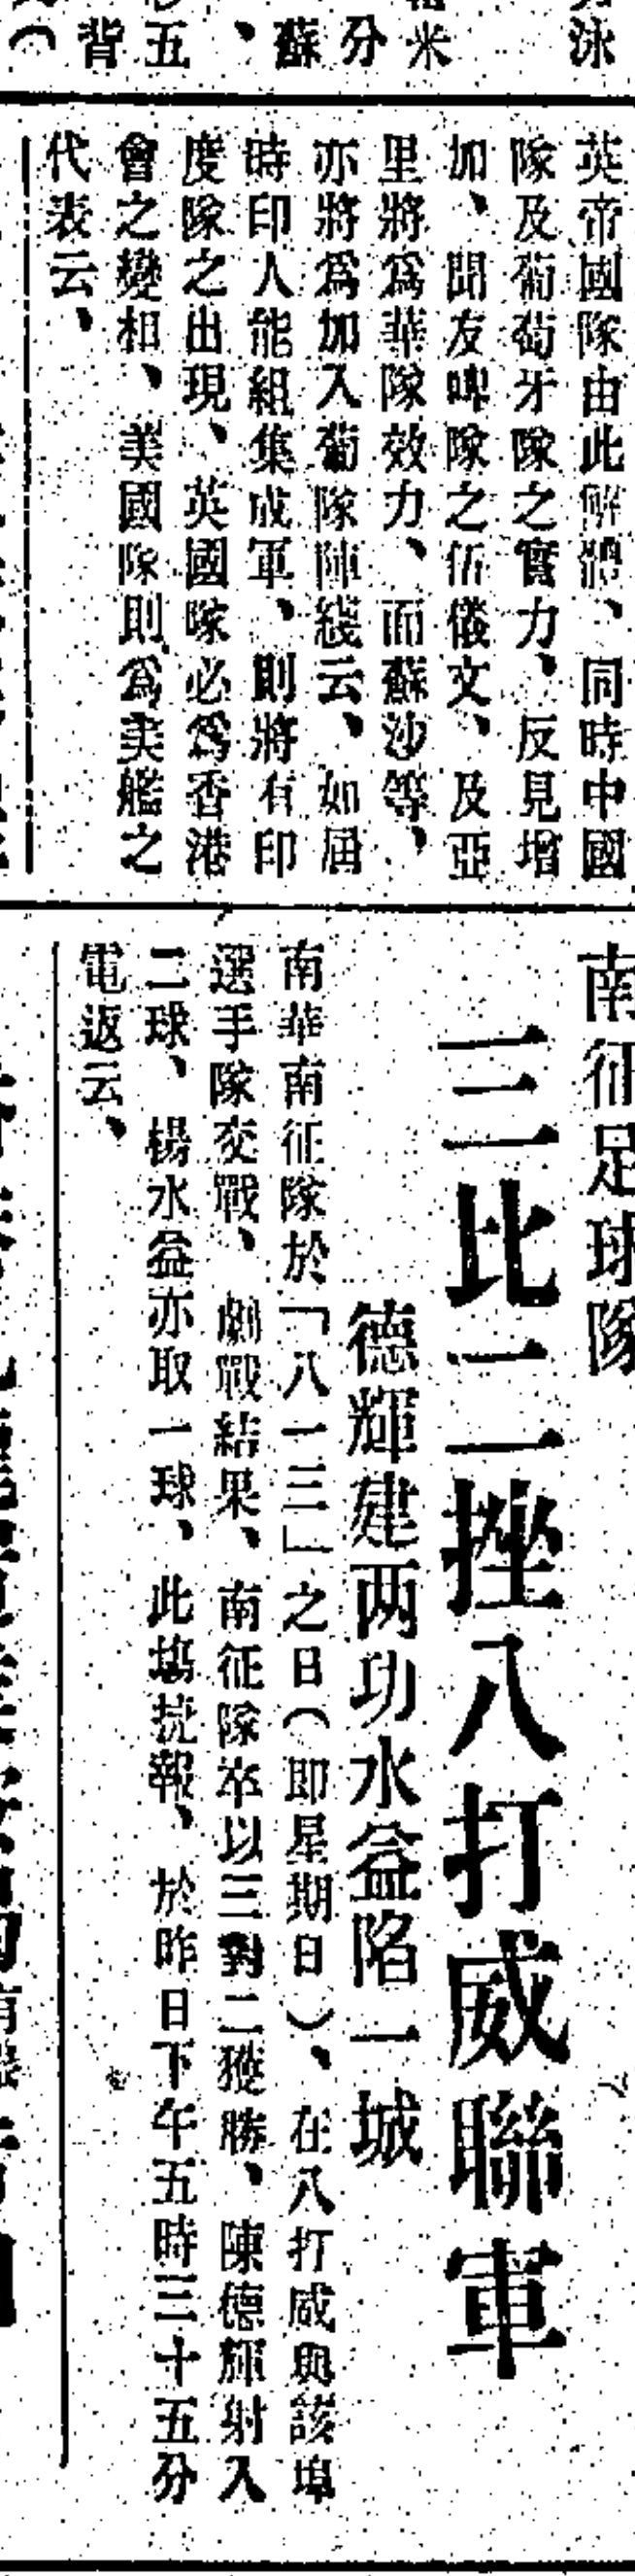 泳
米
分
蘇
、
五
背
英帝國隊由此解體、同時中國
隊及葡萄牙隊之實力、反見增
加、聞友啤隊之伍儀文、及亞
里將爲華隊效力、而蘇沙等、
亦將爲加入葡隊陣綫云、如屆
時印人能組集成軍、則將有印
度隊之出現、英國隊必爲香港
會之變相、美國隊則爲美艦之
代表云、
南征足球隊
三比二挫八打威聯軍
德輝建两功水益陷一城
南華南征隊於「八一三」之日(即星期日)、在八打威與該埠
選手隊交戰、劇戰結果、南征隊卒以三對二獲勝、陳德輝射入
二球、楊水益亦取一球、此塲捷報、於昨日下午五時三十五分
電返云、